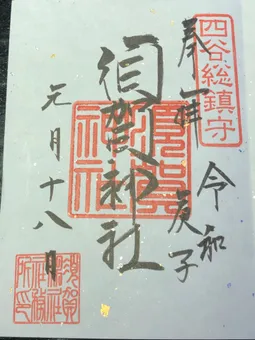 四谷総鎮守
奉拝
令和
庚子
須賀神社
須賀神社
元月十八日
須賀神社社務所印